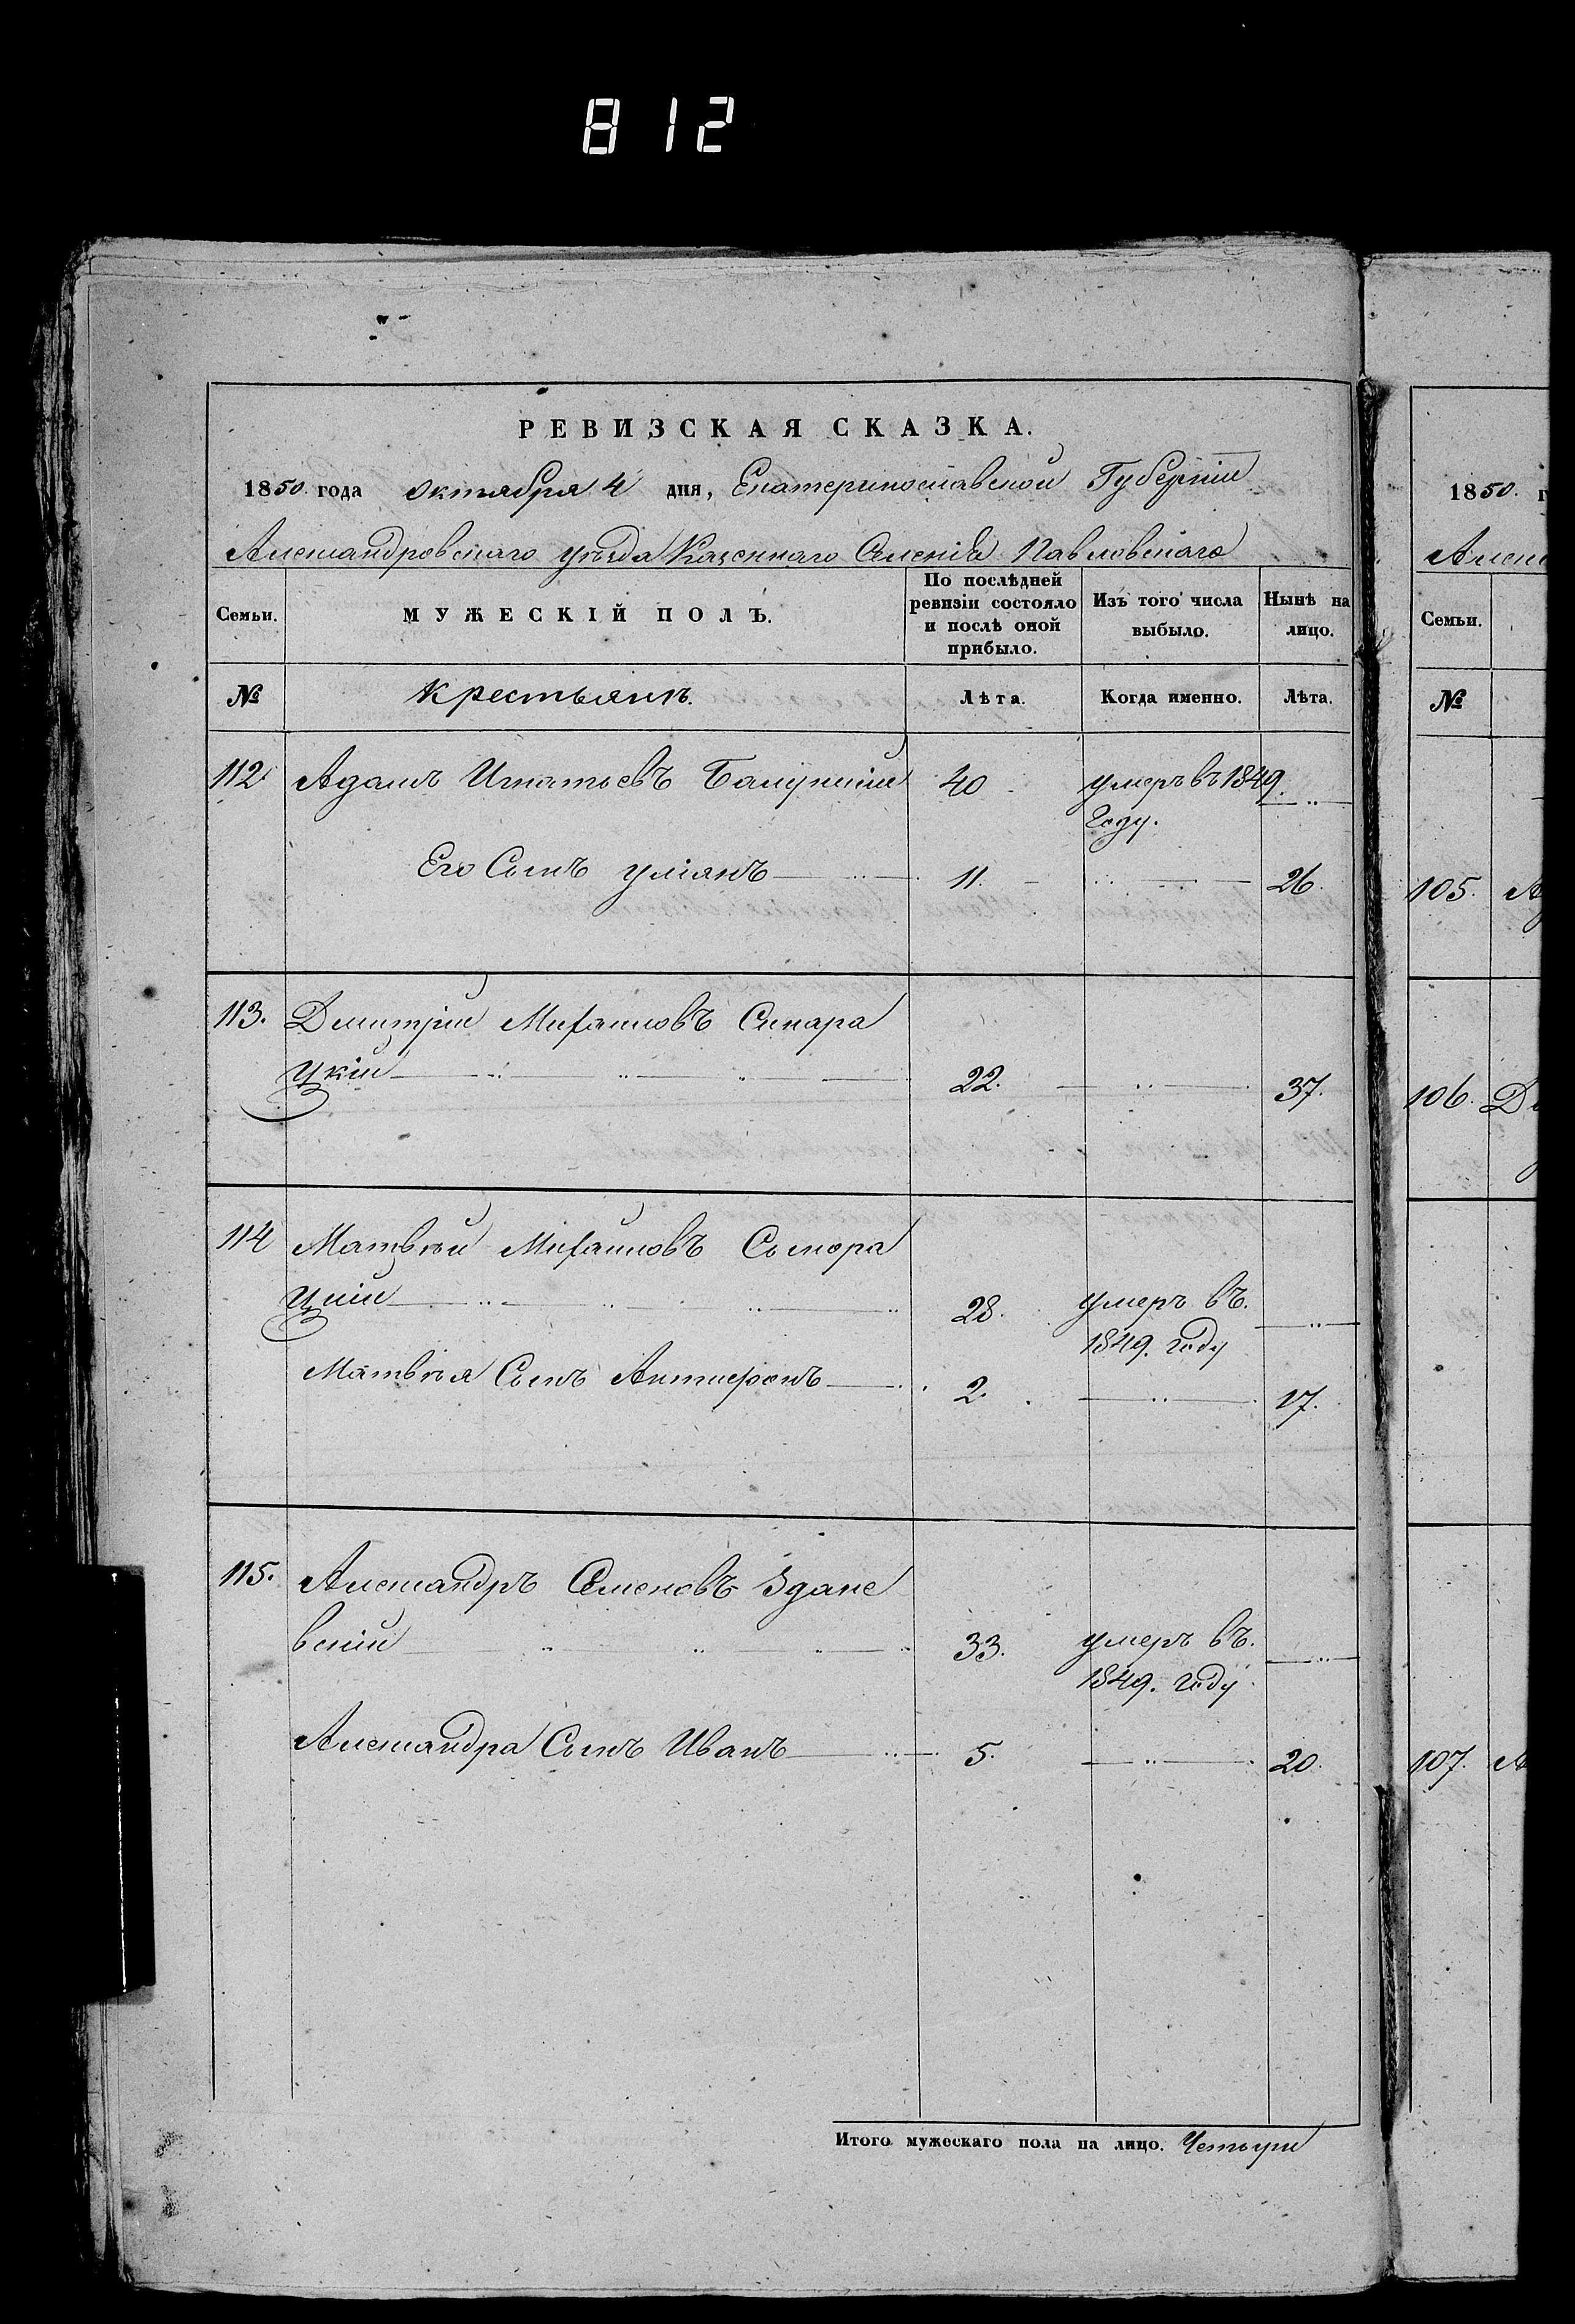 812
РЕВИЗСКАЯ СКАЗКА.
1850. года октября 4 дня, Екатеринославской Губерніи
Александровскаго уѣзда Казеннаго Селенія Павловскаго
Семьи.
МУЖЕСКІЙ ПОЛЪ.
По послѣдней ревизіи состояло и послѣ оной прибыло.
Изъ того числа выбыло.
Нынѣ на лицо.
№ Крестьянъ. Лѣта. Когда именно. Лѣта.
112 Адамъ Игнатьевъ 40 умеръ въ 1849.
году.
Его Сынъ 11. 26.
113. Дмитрій Михайловъ Сикара
цкій 22. 37.
114 Матвѣй Михайловъ
цкій 28. умеръ въ.
1849. году
Матвѣя Сынъ 2. 17.
115. Александръ Семеновъ Здане
вскій 33. умеръ въ.
1849. году.
Александра Сынъ Иванъ 5. 20.
Итого мужескаго пола на лицо. Четыри
1850. г
Алекс
Семьи.
№
105.
106. Д
107. А